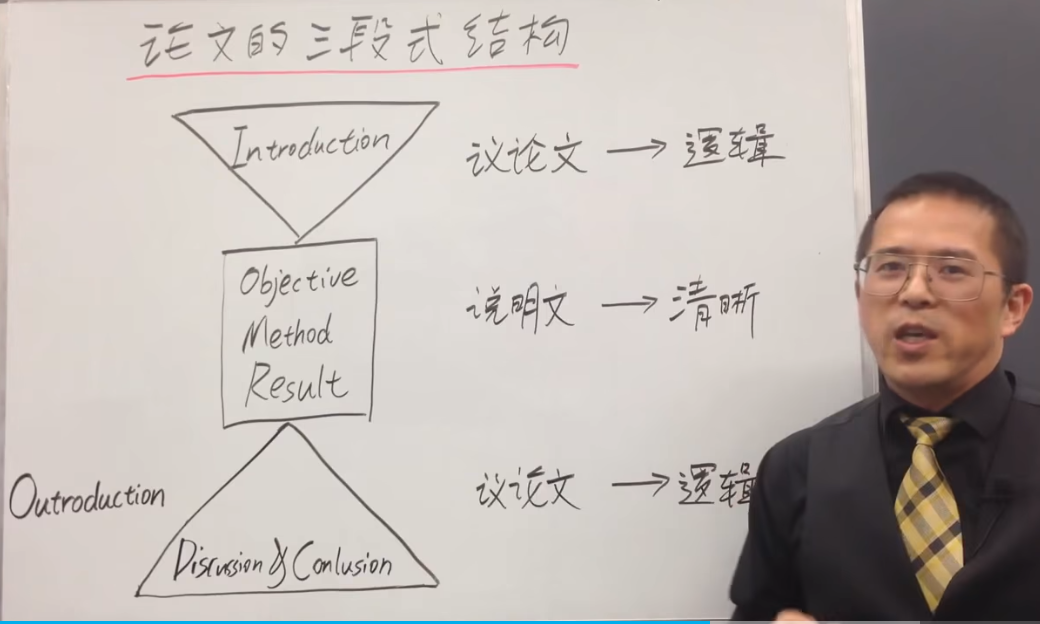 论文的三段式结构
Introduction
议论文 → 逻辑
Objective
Method
Result
说明文 → 清晰
Outroduction
Discussion & Conlusion
议论文 → 逻辑